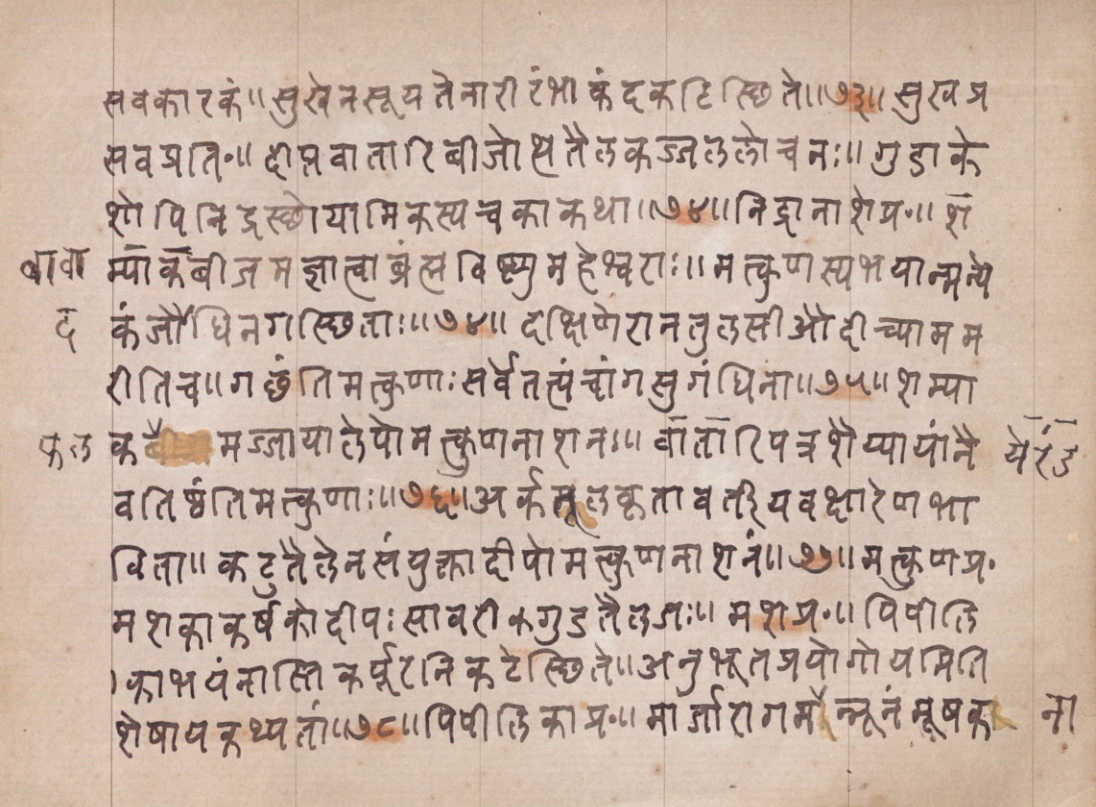 सवकारकं॥ सुखेनसूयतेनारीरंभाकंदकटिस्छिते॥७३॥ सुखप्र
सवप्रति॰॥ दीप्तवातारिबीजोत्थतैलकज्जललोचनः॥ गुडाके
शोपिनिद्रस्छोयामिकस्यचकाकथा॥७४॥ निद्रानाशेप्र॰॥ शं
बावा म्पाकबीजमज्ञात्वाब्रंह्मविष्णुमहेश्वराः॥ मत्कुणस्यभयान्मन्ये
द कंजौधिनगस्छिताः॥७४॥ दक्षिणेरानतुलसीऔदीच्यामम
रीतिच॥ गछंतिमत्कुणाःसर्वेतत्पंचांगसुगंधिना॥७५॥ शम्पा
फल क मज्जायालेपोमत्कुणनाशनः॥ वातारिपत्रशैय्यायांनै येरंड
वतिष्ठंतिमत्कुणाः॥७६॥ अर्कमूलकृतावर्तीयवक्षारेणभा
विता॥ कटुतैलेनसंयुक्तादीपोमत्कुणनाशनं॥७७॥ मत्कुणप्र॰
मशकाकर्षकोदीपःसावरीकगुडतैलजः॥ मशप्र॰॥ पिपीलि
काभयंनास्तिकर्पूरनिकटेस्छिते॥ अनुभूतप्रयोगोयमिति
शेषायकथ्यतां॥७८॥ पिपीलिकाप्र॰॥ मार्जारागमैर्न्नूनंमूषका ना